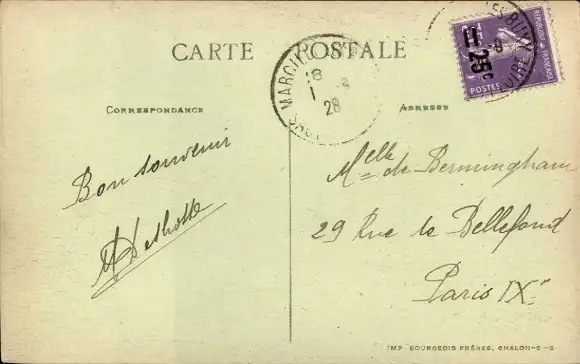 CARTE POSTALE
RÉPUBLIQUE FRANÇAISE
=25c
POSTES
18
1
28
CORRESPONDANCE
ADRESSE
Bon souvenir
Melle de Bermingham
29 Rue de Bellefond
Paris IXe
IMP. BOURGEOIS FRÈRES, CHALON-S-S